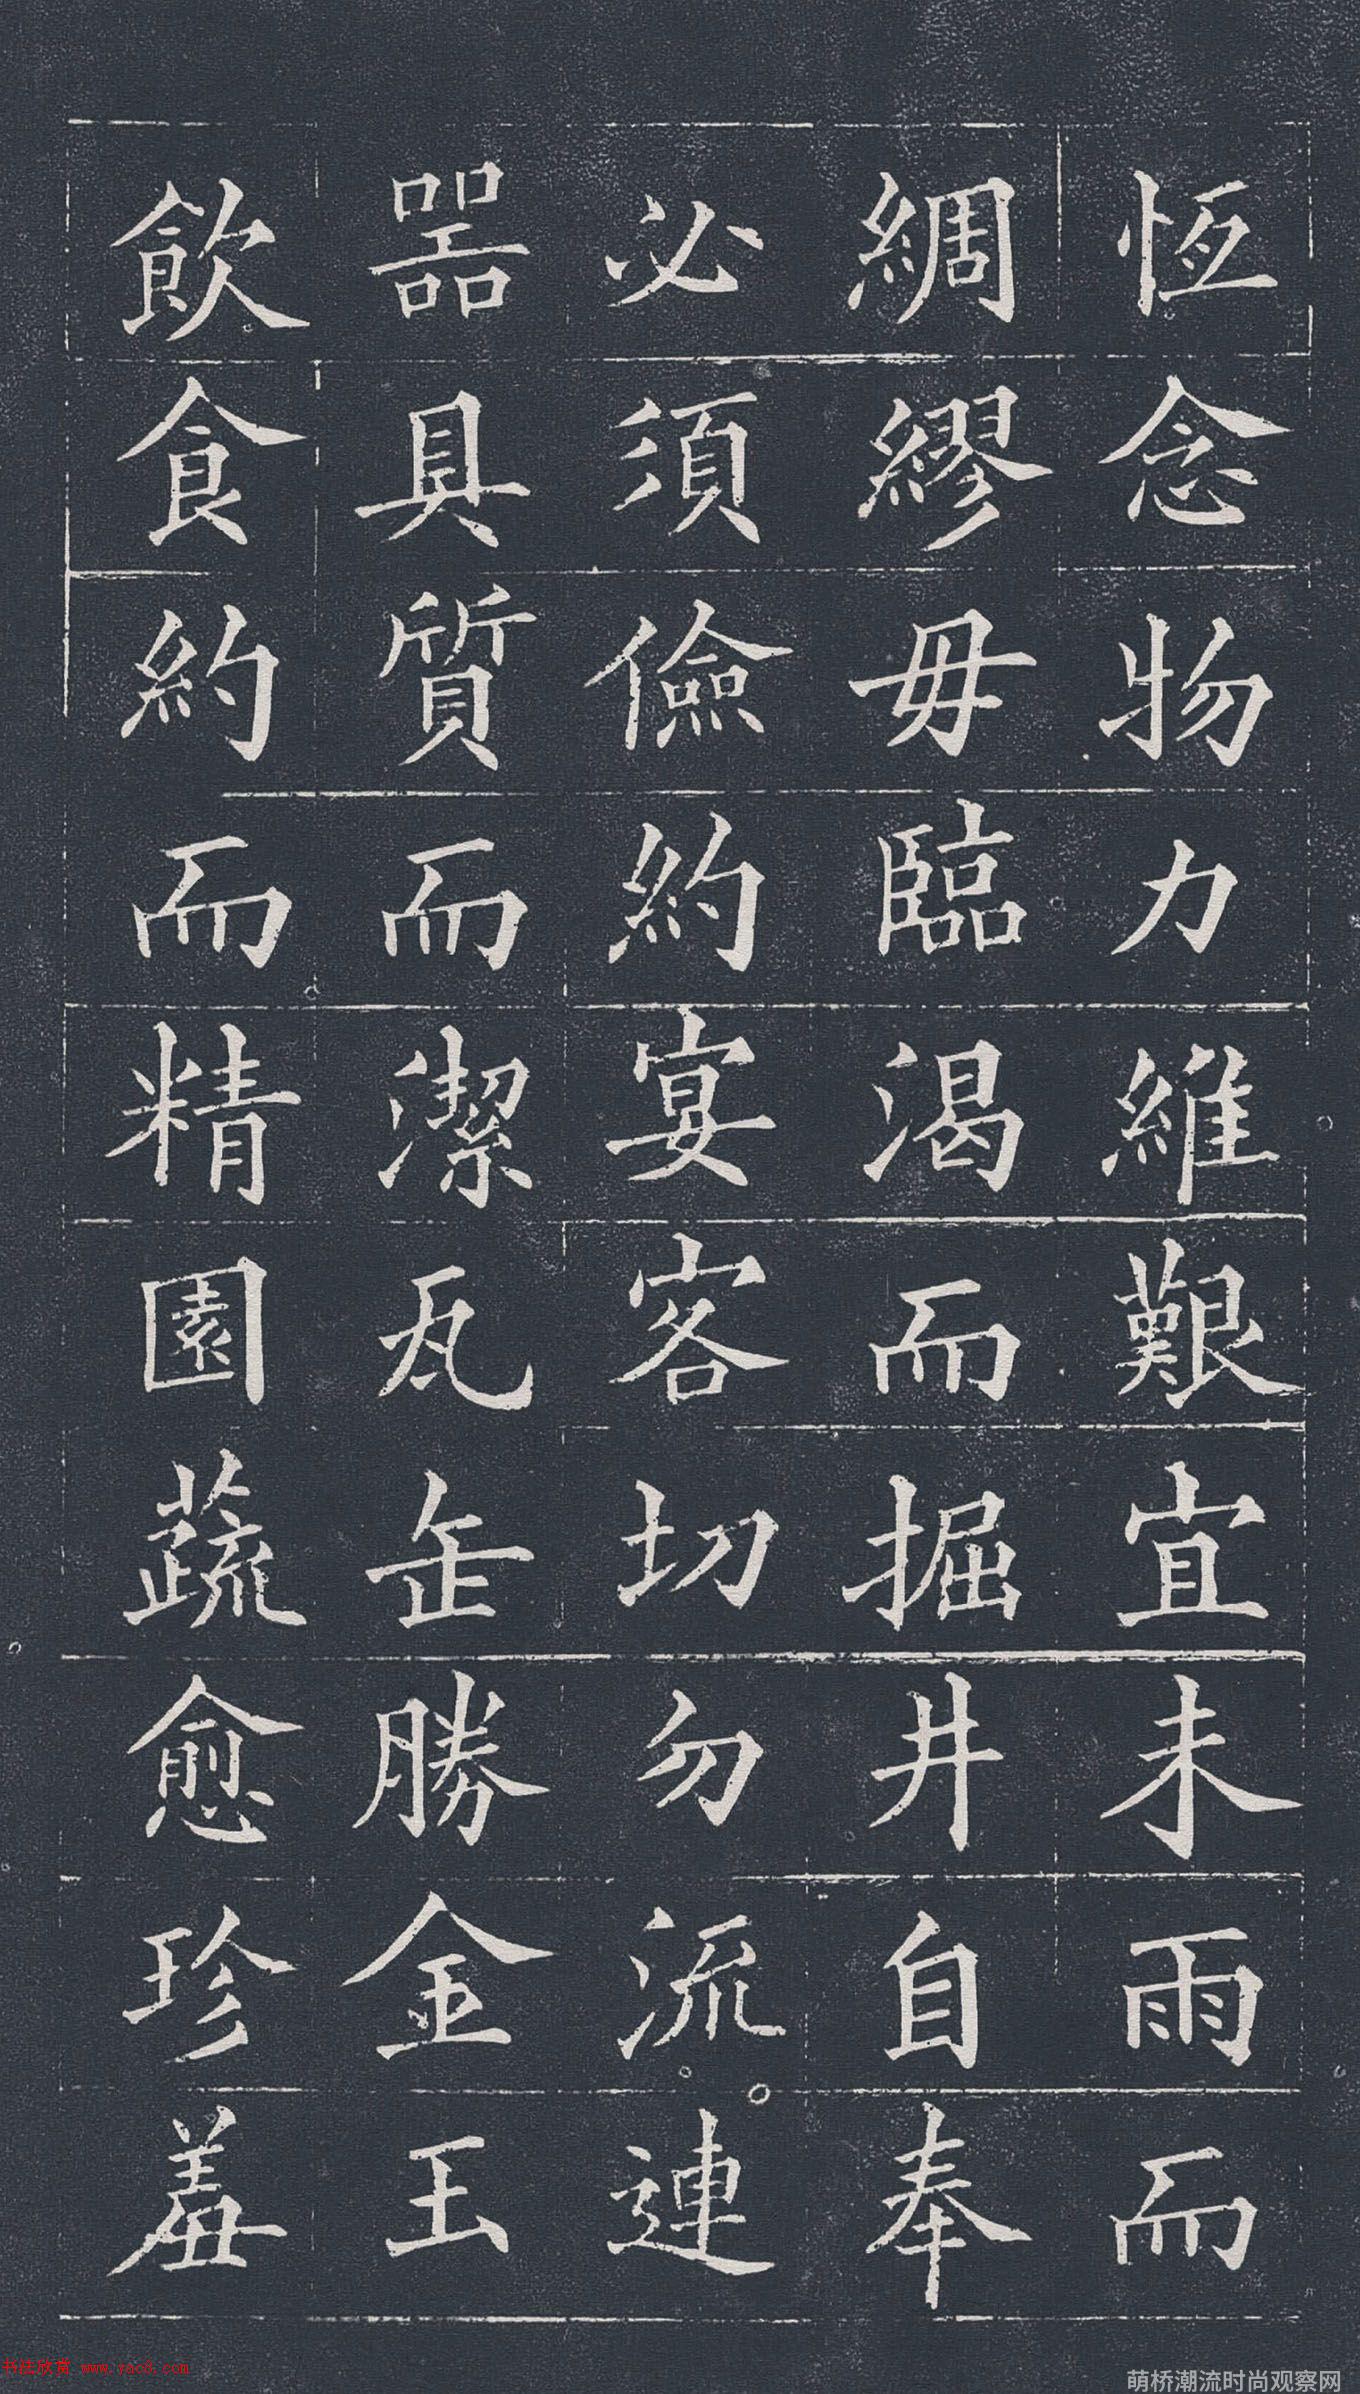 恆念物力維艱宜未雨而
綢繆毋臨渴而掘井自奉
必須儉約宴客切勿流連
器具質而潔瓦缶勝金玉
飲食約而精園蔬愈珍羞
书法欣赏 www.yac8.com
萌桥潮流时尚观察网